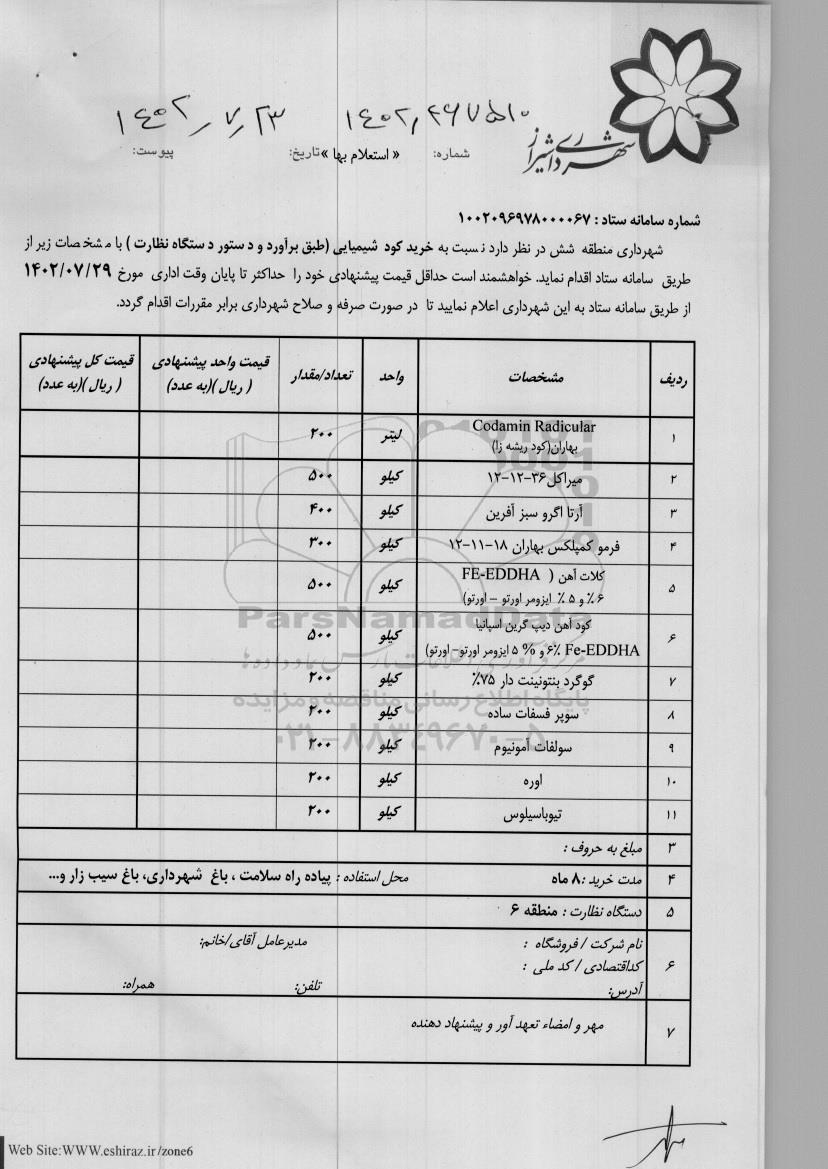 شهرداری شیراز
۱۴۰۲٫۲۶۷۵۱۰
۱۴۰۲٫۷٫۲۳
شماره: « استعلام بها » تاریخ: پیوست:
شماره سامانه ستاد : ۱۰۰۲۰۹۶۹۷۸۰۰۰۰۶۷
شهرداری منطقه شش در نظر دارد نسبت به خرید کود شیمیایی (طبق برآورد و دستور دستگاه نظارت ) با مشخصات زیر از
طریق سامانه ستاد اقدام نماید. خواهشمند است حداقل قیمت پیشنهادی خود را حداکثر تا پایان وقت اداری مورخ ۱۴۰۲/۰۷/۲۹
از طریق سامانه ستاد به این شهرداری اعلام نمایید تا در صورت صرفه و صلاح شهرداری برابر مقررات اقدام گردد.
ردیف مشخصات واحد تعداد/مقدار قیمت واحد پیشنهادی ( ریال )(به عدد) قیمت کل پیشنهادی ( ریال )(به عدد)
۱ Codamin Radicular لیتر ۲۰۰
بهاران(کود ریشه زا)
۲ میراکل۳۶-۱۲-۱۲ کیلو ۵۰۰
۳ آرتا اگرو سبز آفرین کیلو ۴۰۰
۴ فرمو کمپلکس بهاران ۱۸-۱۱-۱۲ کیلو ۳۰۰
۵ کلات آهن ( FE-EDDHA کیلو ۵۰۰
۶٪ و ۵ ٪ ایزومر اورتو – اورتو)
۶ کود آهن دیپ گرین اسپانیا کیلو ۵۰۰
Fe-EDDHA ۶٪ و % ۵ ایزومر اورتو- اورتو)
۷ گوگرد بنتونینت دار ۷۵٪ کیلو ۲۰۰
۸ سوپر فسفات ساده کیلو ۲۰۰
۹ سولفات آمونیوم کیلو ۲۰۰
۱۰ اوره کیلو ۲۰۰
۱۱ تیوباسیلوس کیلو ۲۰۰
۳ مبلغ به حروف :
۴ مدت خرید :۸ ماه محل استفاده : پیاده راه سلامت ، باغ شهرداری، باغ سیب زار و...
۵ دستگاه نظارت : منطقه ۶
۶ نام شرکت / فروشگاه : مدیرعامل آقای/خانم:
کداقتصادی / کد ملی :
آدرس: تلفن: همراه:
۷ مهر و امضاء تعهد آور و پیشنهاد دهنده
ParsNamadData
پایگاه اطلاع رسانی مناقصه و مزایده
۰۲۱-۸۸۳۴۹۶۷۰-۵
Web Site:WWW.eshiraz.ir/zone6